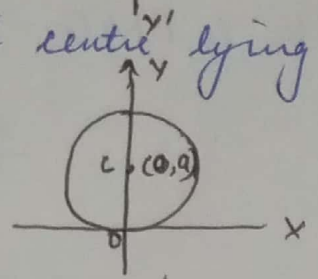 Y'
centre lying
Y
C (0,a)
O
X